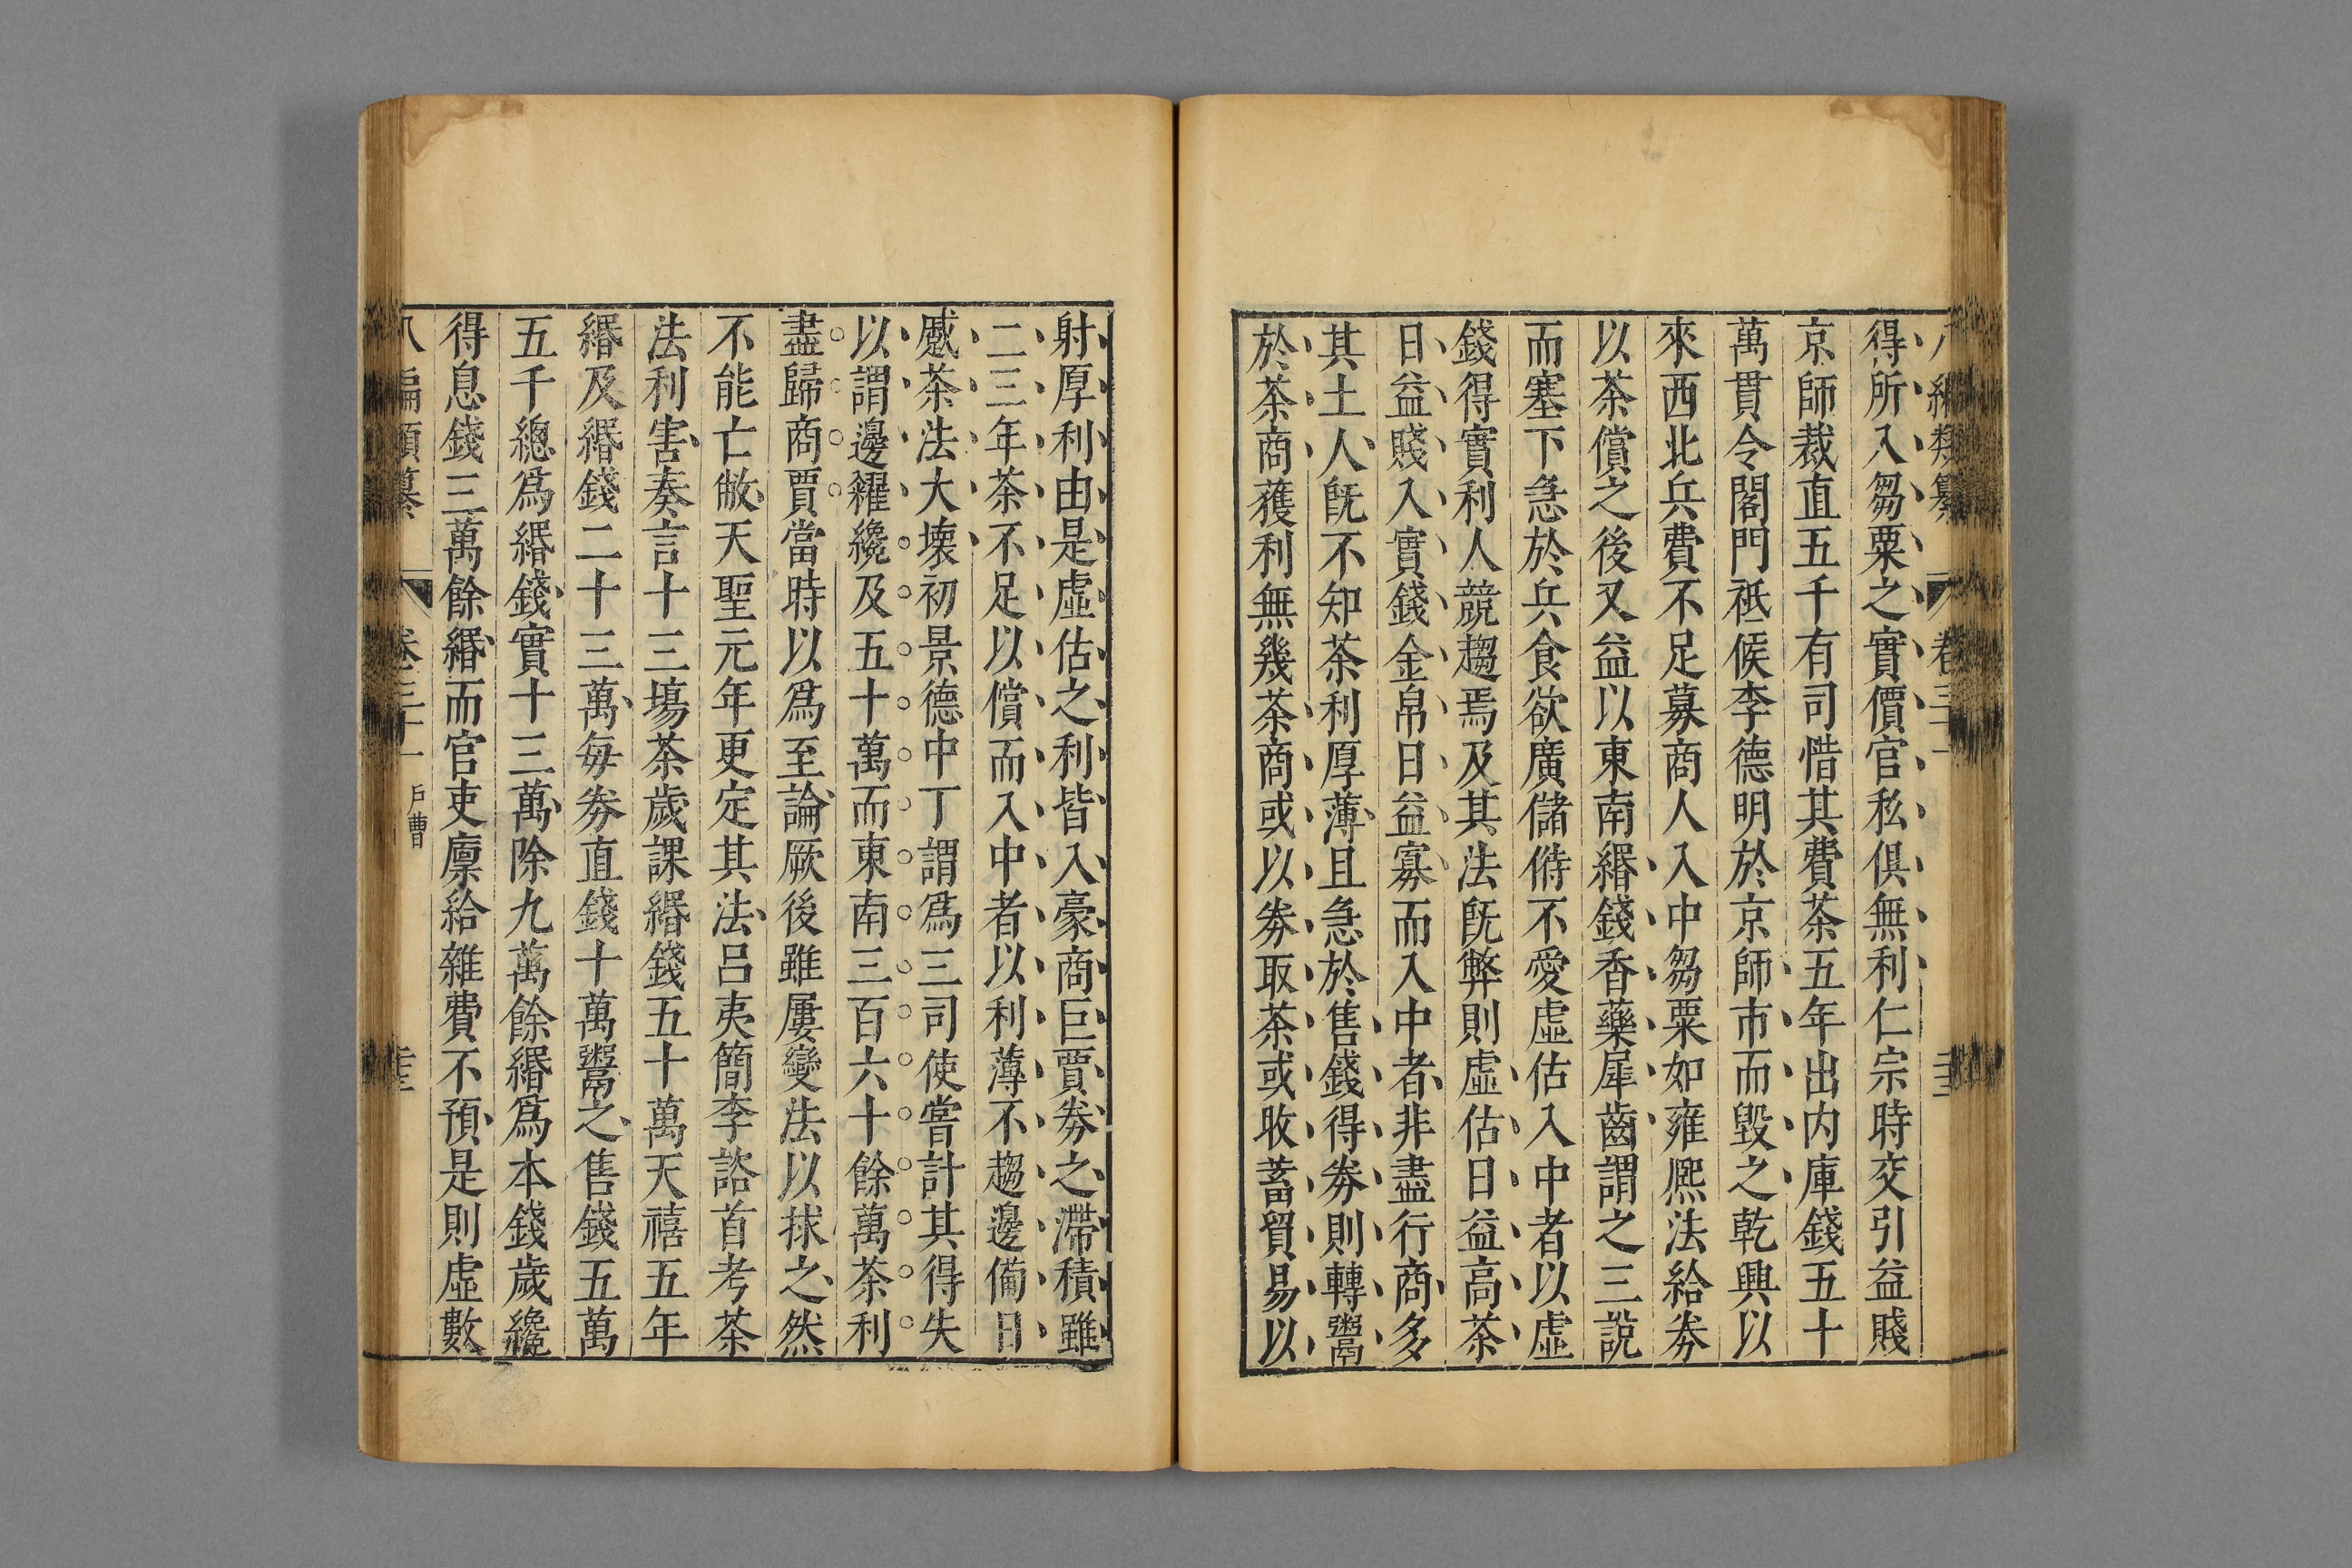 得所入芻粟之實價官私俱無利仁宗時交引益賤
京師裁直五千有司惜其費茶五年出内庫錢五十
萬貫令閣門祗候李德明於京師市而毀之乾興以
來西北兵費不足募商人入中芻粟如雍熙法給券
以茶償之後又益以東南緡錢香藥犀齒謂之三說
而塞下急於兵食欲廣儲偫不愛虛估入中者以虛
錢得實利人競趨焉及其法既弊則虛估日益高茶
日益賤入實錢金帛日益寡而入中者非盡行商多
其土人既不知茶利厚薄且急於售錢得券則轉鬻
於茶商獲利無幾茶商或以券取茶或收蓄貿易以
射厚利由是虛估之利皆入豪商巨賈券之滯積雖
二三年茶不足以償而入中者以利薄不趨邊備日
蹙茶法大壞初景德中丁謂爲三司使嘗計其得失
以謂邊糴纔及五十萬而東南三百六十餘萬茶利
盡歸商賈當時以爲至論厥後雖屢變法以捄之然
不能亡敝天聖元年更定其法呂夷簡李諮首考茶
法利害奏言十三塲茶歲課緡錢五十萬天禧五年
緡及緡錢二十三萬每券直錢十萬鬻之售錢五萬
五千總爲緡錢實十三萬除九萬餘緡爲本錢歲纔
得息錢三萬餘緡而官吏廩給雜費不預是則虛數
八編類纂 卷三十一 戶曹